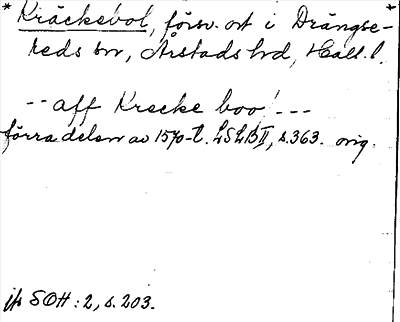 * Kräckebol, försv. ort i Drängse-
reds sn, Årstads hd, Hall. l.
-- aff Krecke boo! ---
förra delen av 1570-t. LSLB II, s. 363. orig.
jfr SOH: 2, s. 203.